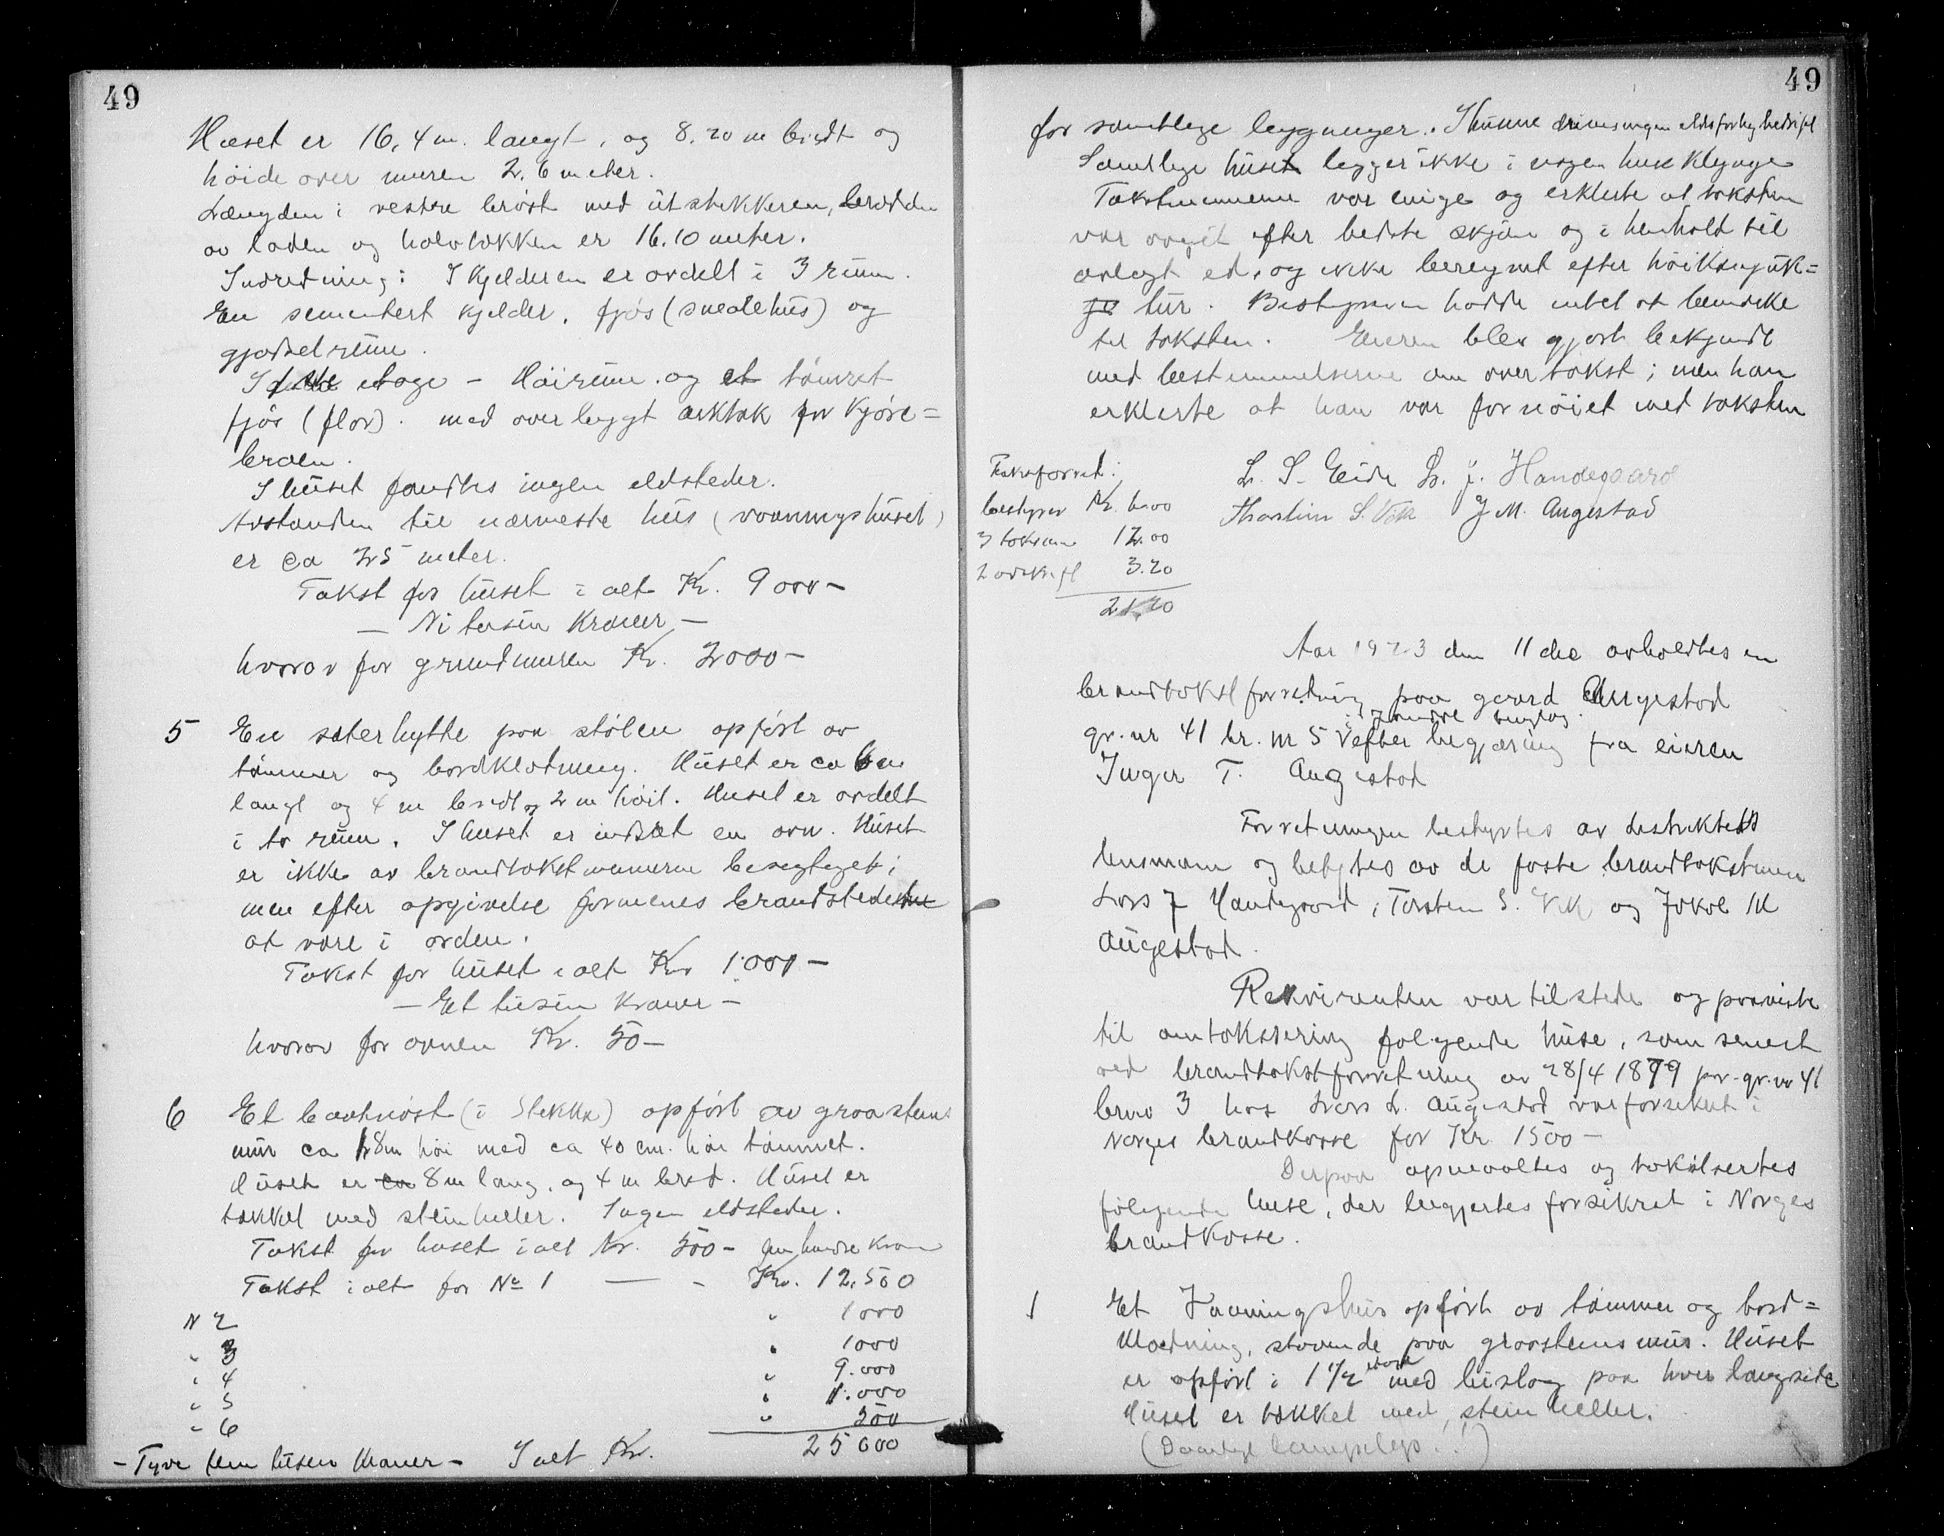 49
Huset er 16,4 m. langt, og 8.20 m bredt og
høide over muren 2.6 meter.
Længden i vestre brøst med utstikkeren, bredden
av laden og halvtækken er 16.10 meter.
Indredning: I kjelderen er avdelt i 3 rum.
En sementert kjelder, fjøs (smalehus) og
gjødselrum.
I etage - Høirum og et tømret
fjøs (flor). med overbygt arktak for kjøre=
broen.
I huset fandtes ingen eldsteder.
Avstanden til nærmeste hus (vaaningshuset)
er ca 25 meter.
Takst for huset i alt Kr. 9000-
- Ni tusin Kroner -
hvorav for grundmuren Kr. 2000-
5 En sæterhytte paa stølen opført av
tømmer og bordklædning. Huset er ca 6 m
langt og 4 m bredt og 2 m høit. Huset er avdelt
i to rum. I huset er indsat en ovn. Huset
er ikke av brandtakstmannerne besigtiget;
men efter opgivelse formenes brandstederne
at være i orden.
Takst for huset i alt Kr 1000-
- Et tusin Kroner -
hvorav for ovnen Kr. 50-
6 Et baatnøst (i Stekka) opført av graastens
mur ca 1,8m høi med ca 40 cm. høi tømmer.
Huset er ca 8 m lang, og 4 m bred. Huset er
tækket med steinheller. Ingen eldsteder.
Takst for huset i alt Kr. 500- fem hundre Kroner
Takst i alt for No 1 — - Kr. 12.500
N 2 " 1000
" 3 " 1000
" 4 " 9.000
" 5 " 1.000
" 6 " 500
- Tyve fem tusen Kroner - I alt Kr. 25000
49
for samtlige bygninger. I husene drives ingen eldsfarlig bedrift
Samtlige huse ligger ikke i nogen huse klynge
Takstmennene var enige og erklerte at taksten
var avgit efter bedste skjøn og i henhold til
avlagt ed, og ikke beregnet efter høikonjunk=
tur. Bestyreren hadde intet at bemerke
til taksten. Eieren blev gjort bekjendt
med bestemmelserne om overtakst; men han
erklerte at han var fornøiet med taksten
L. S. Eide L. J. Handegaard
Thorstein S. Vik J M. Augestad
Takstforret:
bestyrer Kr. 6.00
3 taksm 12.00
2 avskrift 3.20
21.20
Aar 1923 den 11 dec avholdtes en
brandtakstforretning paa gaard Augestad
gr. nr 41 br. nr 5 efter begjæring fra eieren
Inger T. Augestad
Forretningen bestyrtes av distriktets
lensmann og betjtes av de faste brandtakstmen
Lars J Handegaard, Torstein S. Vik og Jakob M
Augestad.
Rekvirenten var tilstede og paaviste
til omtaksering følgende huse, som senest
ved brandtakstforretning av 28/4 1879 paa gr. nr 41
brno 3 hos Lars L. Augestad var forsikret i
Norges brandkasse for Kr 1500-
Derpaa opmaaltes og takseretes
følgende huse, der begjertes forsikret i Norges
brandkasse.
1 Et Vaaningshus opført av tømmer og bord=
klædning, staaende paa graastensmur. Huset
er opført i 1 1/2 etage med bislag paa hver langside
Huset er tækket med steinheller.